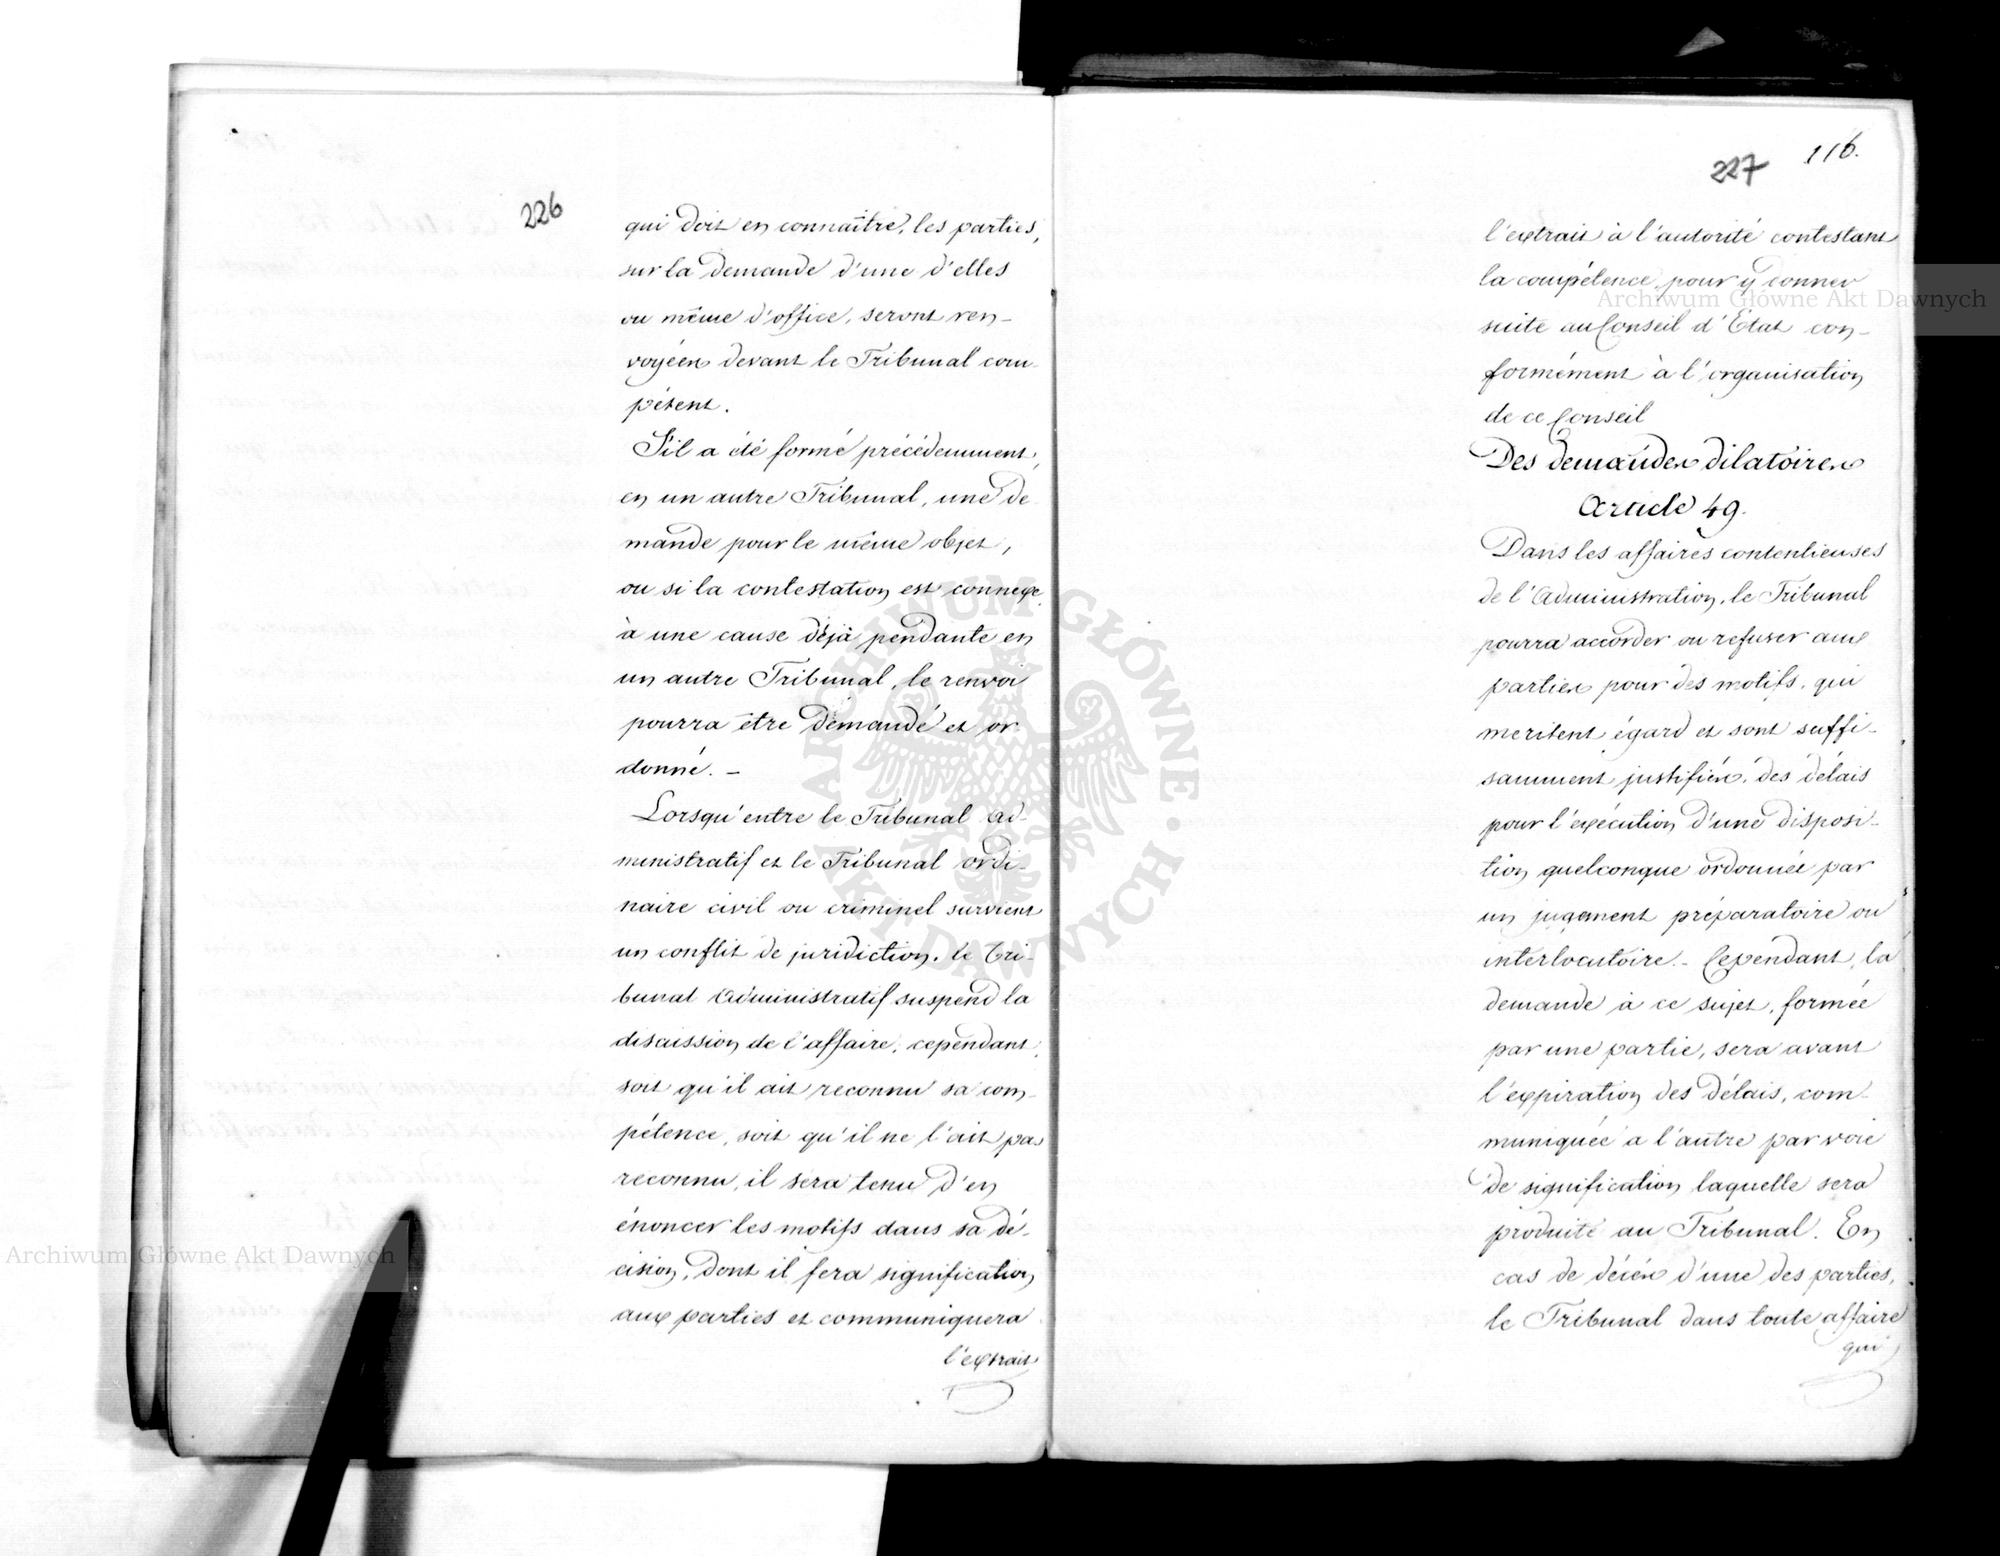 226
qui doit en connaître, les parties,
sur la demande d'une d'elles
ou même d'office, seront ren-
voyées devant le Tribunal com-
pétent.
S'il a été formé précédemment,
en un autre Tribunal, une de-
mande pour le même objet,
ou si la contestation est connexe
à une cause déjà pendante en
un autre Tribunal, le renvoi
pourra être demandé et or-
donné. -
Lorsqu'entre le Tribunal ad-
ministratif et le Tribunal ordi-
naire civil ou criminel survient
un conflit de juridiction, le Tri-
bunal Administratif suspend la
discission de l'affaire; cependant,
soit qu'il ait reconnu sa com-
pétence, soit qu'il ne l'ait pas
reconnu, il sera tenu d'en
énoncer les motifs dans sa dé-
cision, dont il fera signification
aux parties et communiquera
l'extrait
227 116.
l'extrait à l'autorité contestant
la compétence, pour y donner
suite au Conseil d'Etat con-
formément à l'organisation
de ce Conseil
Des demandes dilatoires
Article 49.
Dans les affaires contentieuses
de l'Administration, le Tribunal
pourra accorder ou refuser aux
parties pour des motifs, qui
meritent égard et sont suffi-
samment justifiés, des délais
pour l'exécution d'une disposi-
tion quelconque ordonnée par
un jugement préparatoire ou
interlocutoire. - Cependant, la
demande à ce sujet, formée
par une partie, sera avant
l'expiration des délais, com-
muniquée a l'autre par voie
de signification laquelle sera
produite au Tribunal. En
cas de décés d'une des parties,
le Tribunal dans toute affaire
qui
Archiwum Główne Akt Dawnych
Archiwum Główne Akt Dawnych
ARCHIWUM GŁÓWNE · AKT DAWNYCH ·